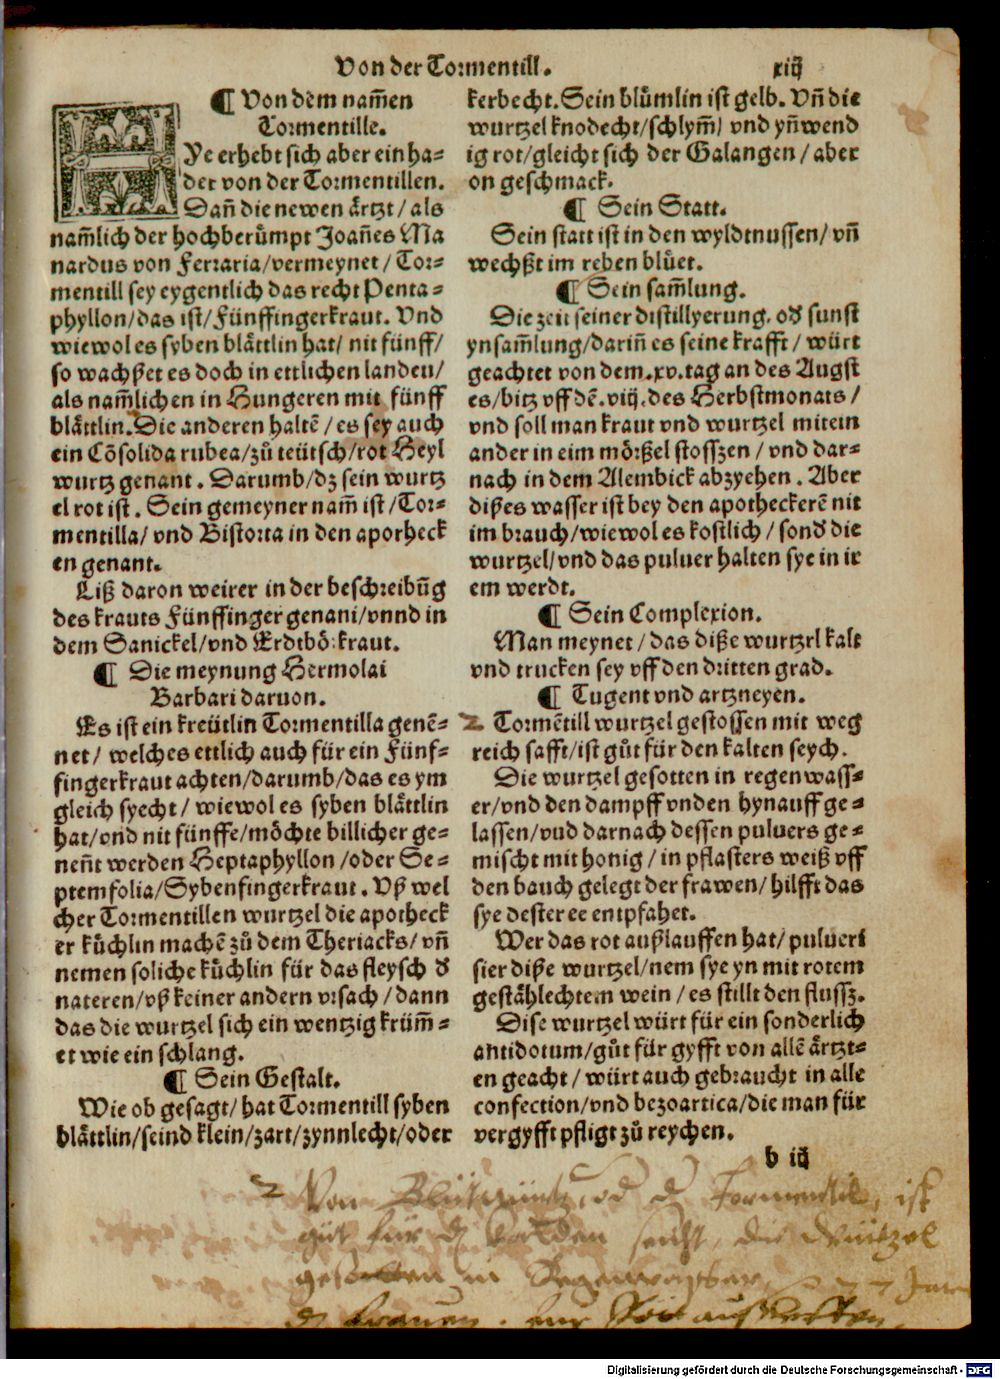 Von der Tormentill. xiij
¶ Von dem nam̄en
Tormentille.
HYe erhebt sich aber ein ha⸗
der von der Tormentillen.
Dan̄ die newen ärtzt / als
nam̄lich der hochberůmpt Joan̄es Ma
nardus von Ferraria/vermeynet / Tor⸗
mentill sey eygentlich das recht Penta⸗
phyllon/das ist/Fünffingerkraut. Vnd
wiewol es syben blåttlin hat/ nit fünff/
so wachßet es doch in ettlichen landen/
als nam̄lichen in Hungeren mit fünff
blåttlin. Die anderen haltē / es sey auch
ein Cōsolida rubea/zů teütsch/rot Heyl
wurtz genant. Darumb/dz sein wurtz
el rot ist. Sein gemeyner nam̄ ist /Tor⸗
mentilla/ vnd Bistorta in den apotheck
en genant.
Liß daron weiter in der beschreibūg
des krauts Fünffinger genant/vnnd in
dem Sanickel/vnd Erdtbör kraut.
¶ Die meynung Hermolai
Barbari daruon.
Es ist ein kreütlin Tormentilla genē⸗
net/ welches ettlich auch für ein Fünf⸗
fingerkraut achten/darumb/das es ym
gleich syecht/ wiewol es syben blåttlin
hat/vnd nit fünffe/möchte billicher ge⸗
nen̄t werden Heptaphyllon /oder Se⸗
ptemfolia/Sybenfingerkraut. Vß wel
cher Tormentillen wurtzel die apotheck
er kůchlin machē zů dem Theriacks/ vn̄
nemen soliche kůchlin für das fleysch d̕
nateren/vß keiner andern vrsach /dann
das die wurtzel sich ein wentzig krüm̄⸗
et wie ein schlang.
¶ Sein Gestalt.
Wie ob gesagt/ hat Tormentill syben
blåttlin/seind klein/zart/zynnlecht/oder
kerbecht. Sein blůmlin ist gelb. Vn̄ die
wurtzel knodecht/schlym̄/ vnd yn̄wend
ig rot/gleicht sich der Galangen / aber
on geschmack.
¶ Sein Statt.
Sein statt ist in den wyldtnussen/ vn̄
wechßt im reben blůet.
¶ Sein sam̄lung.
Die zeit seiner distillyerung, od̕ sunst
ynsam̄lung/darin̄ es seine krafft / würt
geachtet von dem .xv. tag an des Augst
es/bitz vff dē .viij. des Herbstmonats /
vnd soll man kraut vnd wurtzel mitein
ander in eim mörßel stosszen / vnd dar⸗
nach in dem Alembick abzyehen. Aber
dißes wasser ist bey den apotheckerē nit
im brauch/wiewol es kostlich / sond̕ die
wurtzel/vnd das puluer halten sye in ir
em werdt.
¶ Sein Complexion.
Man meynet / das diße wurtzel kalt
vnd trucken sey vff den dritten grad.
¶ Tugent vnd artzneyen.
2 Tormētill wurtzel gestossen mit weg
reich safft/ist gůt für den kalten seych.
Die wurtzel gesotten in regenwass⸗
er/vnd den dampff vnden hynauff ge⸗
lassen/vnd darnach dessen puluers ge⸗
mischt mit honig / in pflasters weiß vff
den bauch gelegt der frawen/ hilfft das
sye dester ee entpfahet.
Wer das rot außlauffen hat/ pulueri
sier diße wurtzel/nem sye yn mit rotem
gestähllechtem wein / es stillt den flussz.
Dise wurtzel würt für ein sonderlich
antidotum/gůt für gyfft von allē ärtzt⸗
en geacht / würt auch gebraucht in alle
confection/vnd bezoartica/die man für
vergyfft pfligt zů reychen.
b iij
2 Von Blůtwurtz, od d Tormentil, ist
gůt für d kalden seicht, die Wurtzel
gesotten in Regenwasser
d frauen.
Digitalisierung gefördert durch die Deutsche Forschungsgemeinschaft - DFG